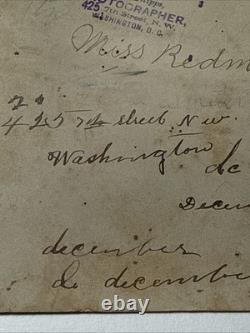 TOGRAPHER,
425 7th Street, N. W.
WASHINGTON, D. C.
Miss Redm
2
425 7th street N w.
Washington
dc
Decem
december
dc december